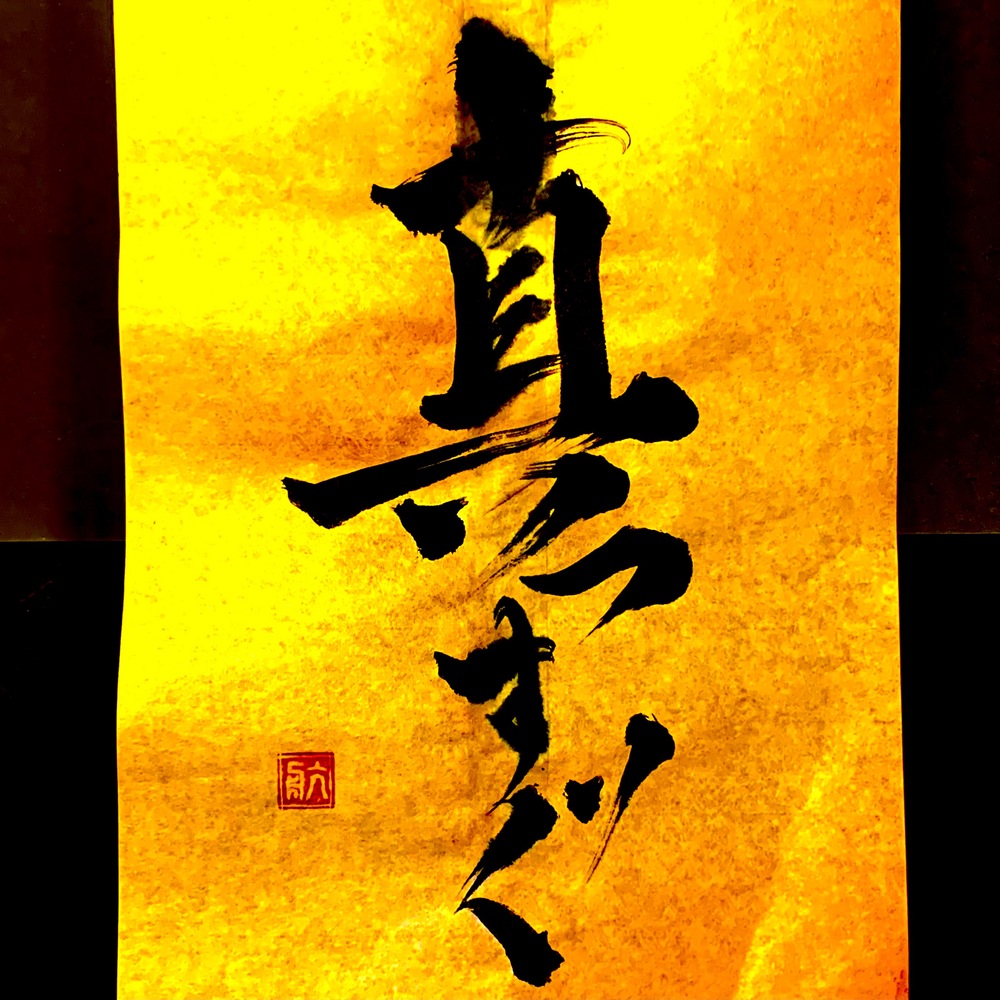 真っすぐ
航